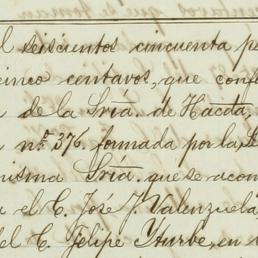 l seiscientos cincuenta pe
cinco centavos, que conf
de la Sría. de Hacda,
nº 376. formada por la Se
misma Sría. que se acom
a el C. José J. Valenzuela
del C. Felipe Yturbe, en